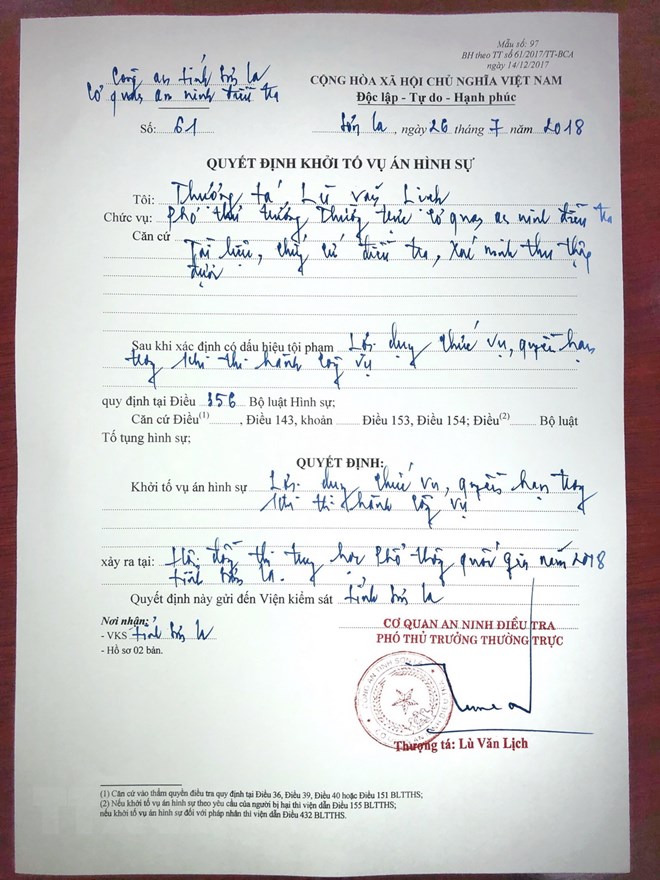 Mẫu số: 97
BH theo TT số 61/2017/TT-BCA
ngày 14/12/2017
Công an tỉnh Sơn La
Cơ quan an ninh điều tra
CỘNG HÒA XÃ HỘI CHỦ NGHĨA VIỆT NAM
Độc lập - Tự do - Hạnh phúc
Số: 61
Sơn La, ngày 26 tháng 7 năm 2018
QUYẾT ĐỊNH KHỞI TỐ VỤ ÁN HÌNH SỰ
Tôi: Thượng tá Lù Văn
Chức vụ: Phó thủ trưởng Thường trực Cơ quan an ninh điều tra
Căn cứ
Tài liệu, chứng cứ điều tra, xác minh thu thập
được
Sau khi xác định có dấu hiệu tội phạm Lợi dụng chức vụ, quyền hạn
trong khi thi hành công vụ
quy định tại Điều 356 Bộ luật Hình sự;
Căn cứ Điều(1), Điều 143, khoản Điều 153, Điều 154; Điều(2) Bộ luật
Tố tụng hình sự;
QUYẾT ĐỊNH:
Khởi tố vụ án hình sự Lợi dụng chức vụ, quyền hạn trong
khi thi hành công vụ
xảy ra tại: Hội đồng thi trung học Phổ thông quốc gia năm 2018
tỉnh Sơn La.
Quyết định này gửi đến Viện kiểm sát tỉnh Sơn La
Nơi nhận:
- VKS tỉnh Sơn La
- Hồ sơ 02 bản.
CƠ QUAN AN NINH ĐIỀU TRA
PHÓ THỦ TRƯỞNG THƯỜNG TRỰC
Thượng tá: Lù Văn Lịch
(1) Căn cứ vào thẩm quyền điều tra quy định tại Điều 36, Điều 39, Điều 40 hoặc Điều 151 BLTTHS;
(2) Nếu khởi tố vụ án hình sự theo yêu cầu của người bị hại thì viện dẫn Điều 155 BLTTHS;
nếu khởi tố vụ án hình sự đối với pháp nhân thì viện dẫn Điều 432 BLTTHS.